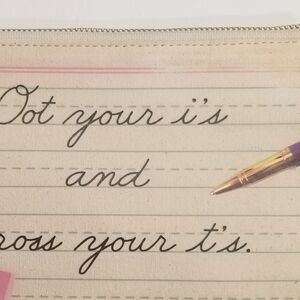 Dot your i's
and
ross your t's.